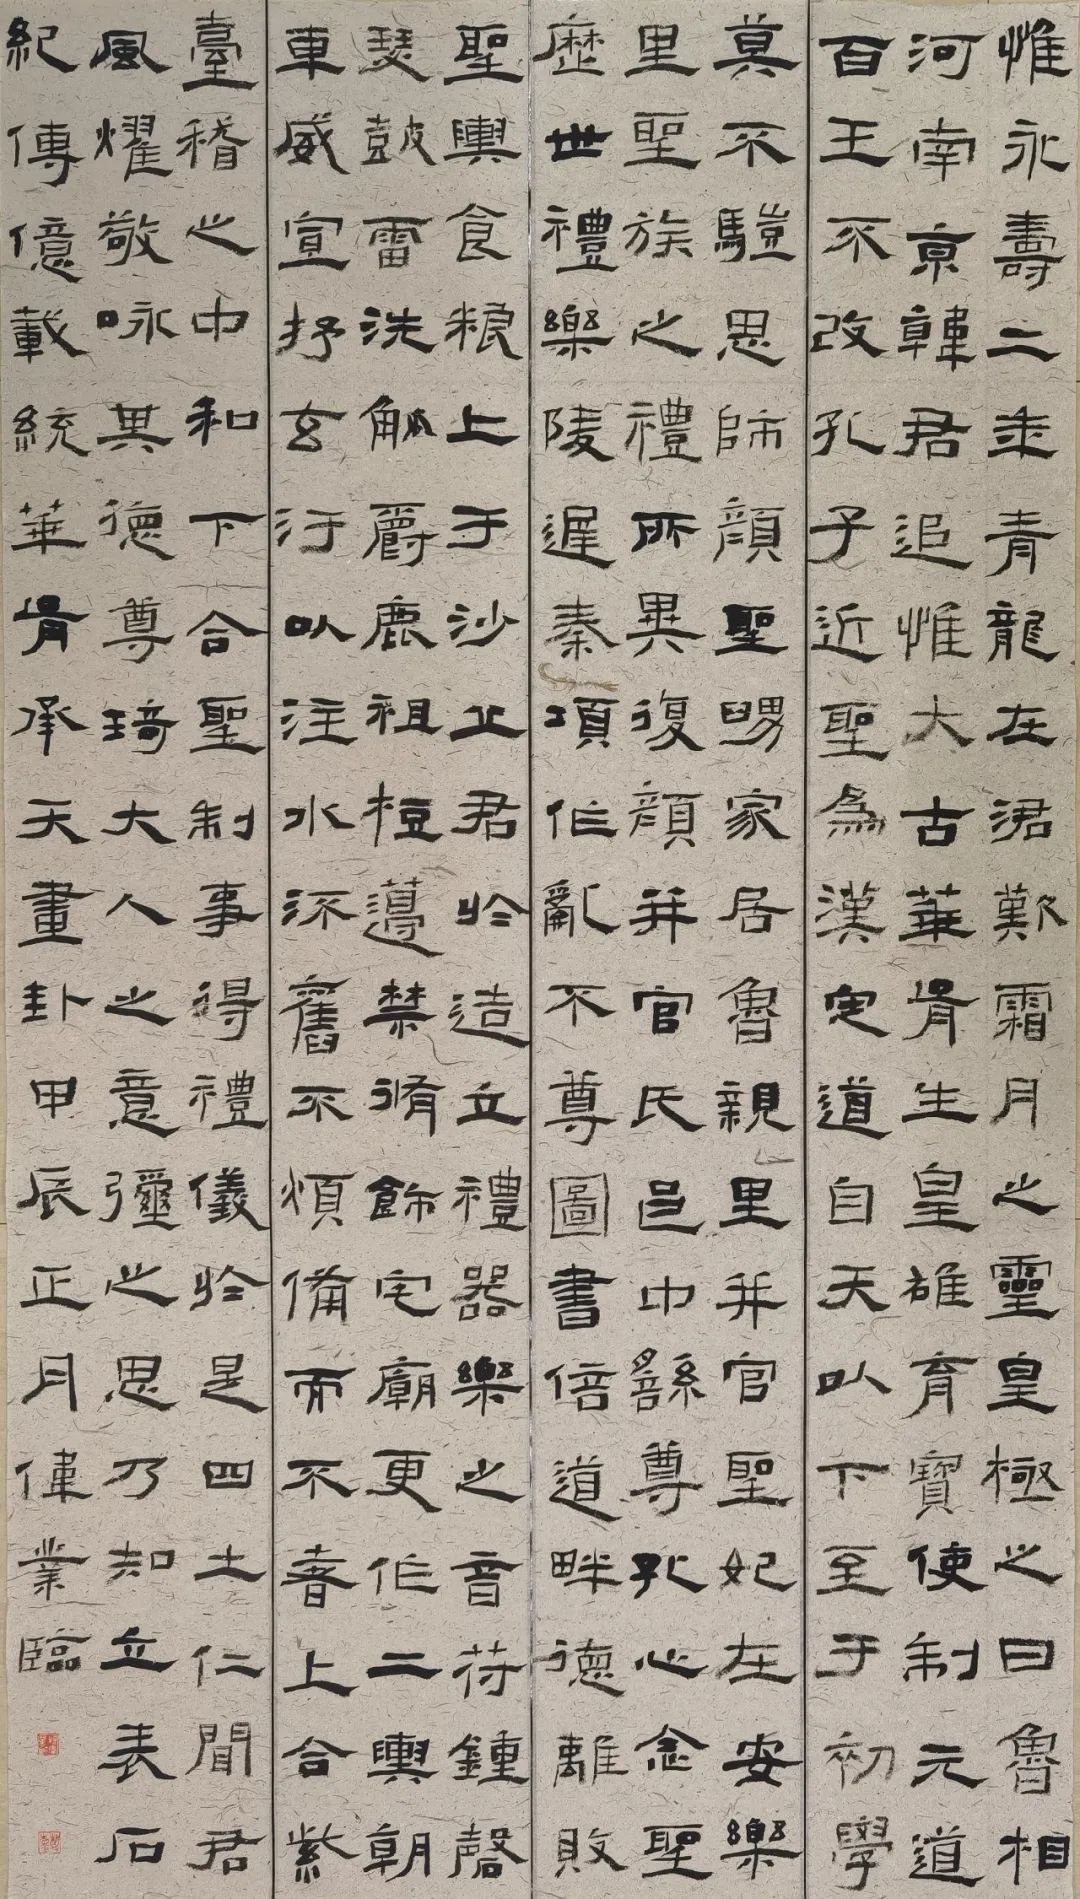 惟永壽二年青龍在涒歎霜月之靈皇極之日魯相
河南京韓君追惟大古華胥生皇雄育寶使制元道
百王不改孔子近聖為漢定道自天以下至于初學
莫不驥思師顏聖舅家居魯親里并官聖妃在安樂
里聖族之禮所異復顏并官氏邑中繇尊孔心念聖
歷世禮樂陵遲秦項作亂不尊圖書倍道畔德離敗
聖輿食粮上于沙丘君於造立禮器樂之音苻鍾磬
瑟鼓雷洗觚爵鹿柤梪籩禁脩飾宅廟更作二輿朝
車威宣抒玄汙以注水流舊不煩備而不奢上合紫
臺稽之中和下合聖制事得禮儀於是四士仁聞君
風燿敬咏其德尊琦大人之意彌之思乃知立表石
紀傳億載統華胥承天畫卦甲辰正月偉業臨